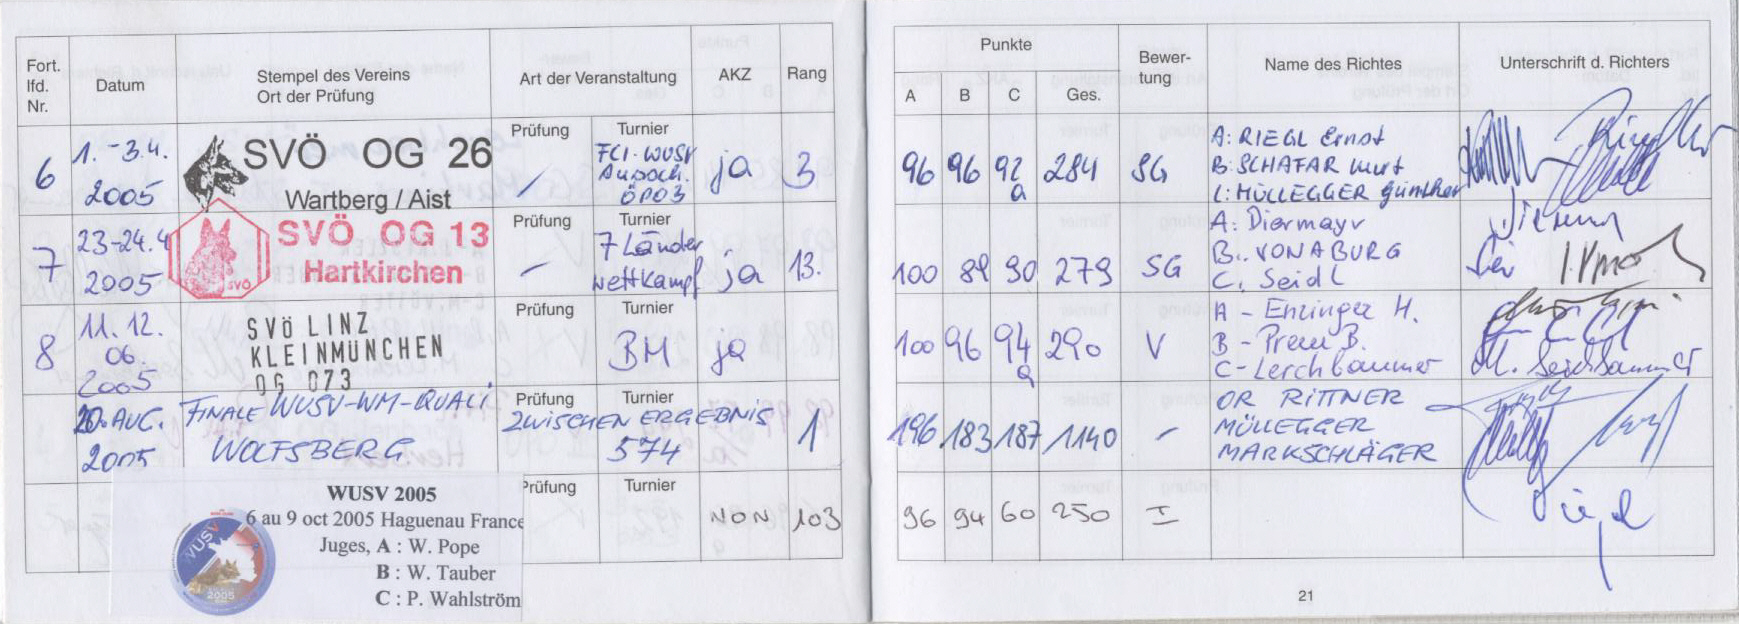 Fort. lfd. Nr.
Datum
Stempel des Vereins
Ort der Prüfung
Art der Veranstaltung
AKZ
Rang
Punkte
A B C Ges.
Bewer-
tung
Name des Richtes
Unterschrift d. Richters
6
1.-3.4.
2005
SVÖ OG 26
Wartberg / Aist
Prüfung
Turnier
FCI-WUSV
ÖPO3
ja
3
96 96 92 284 SG
a
A: RIEGL Ernst
B: SCHAFAR Kurt
C: MÜLLEGGER Günther
7
23-24.4
2005
SVÖ OG 13
Hartkirchen
SVÖ
Prüfung
Turnier
7 Länder
wettkampf
ja
13.
100 89 90 279 SG
A. Diermayr
B. VONABURG
C. Seidl
8
11. 12.
06.
2005
SVÖ LINZ
KLEINMÜNCHEN
OG 073
Prüfung
Turnier
BM
ja
100 96 94 290 V
a
A - Enzinger H.
B - Prem B.
C - Lerchbaumer
20. AUG.
2005
FINALE WUSV-WM-QUALI
WOLFSBERG
Prüfung
Turnier
ZWISCHENERGEBNIS
574
1
196 183 187 1140 -
OR RITTNER
MÜLLEGGER
MARKSCHLÄGER
WUSV 2005
6 au 9 oct 2005 Haguenau France
Juges, A : W. Pope
B : W. Tauber
C : P. Wahlström
WUSV
2005
Prüfung
Turnier
NON
103
96 94 60 250 I
21